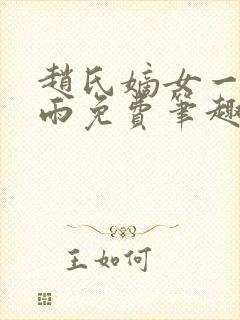 趙氏嫡女一
雨免費筆趣
王如何